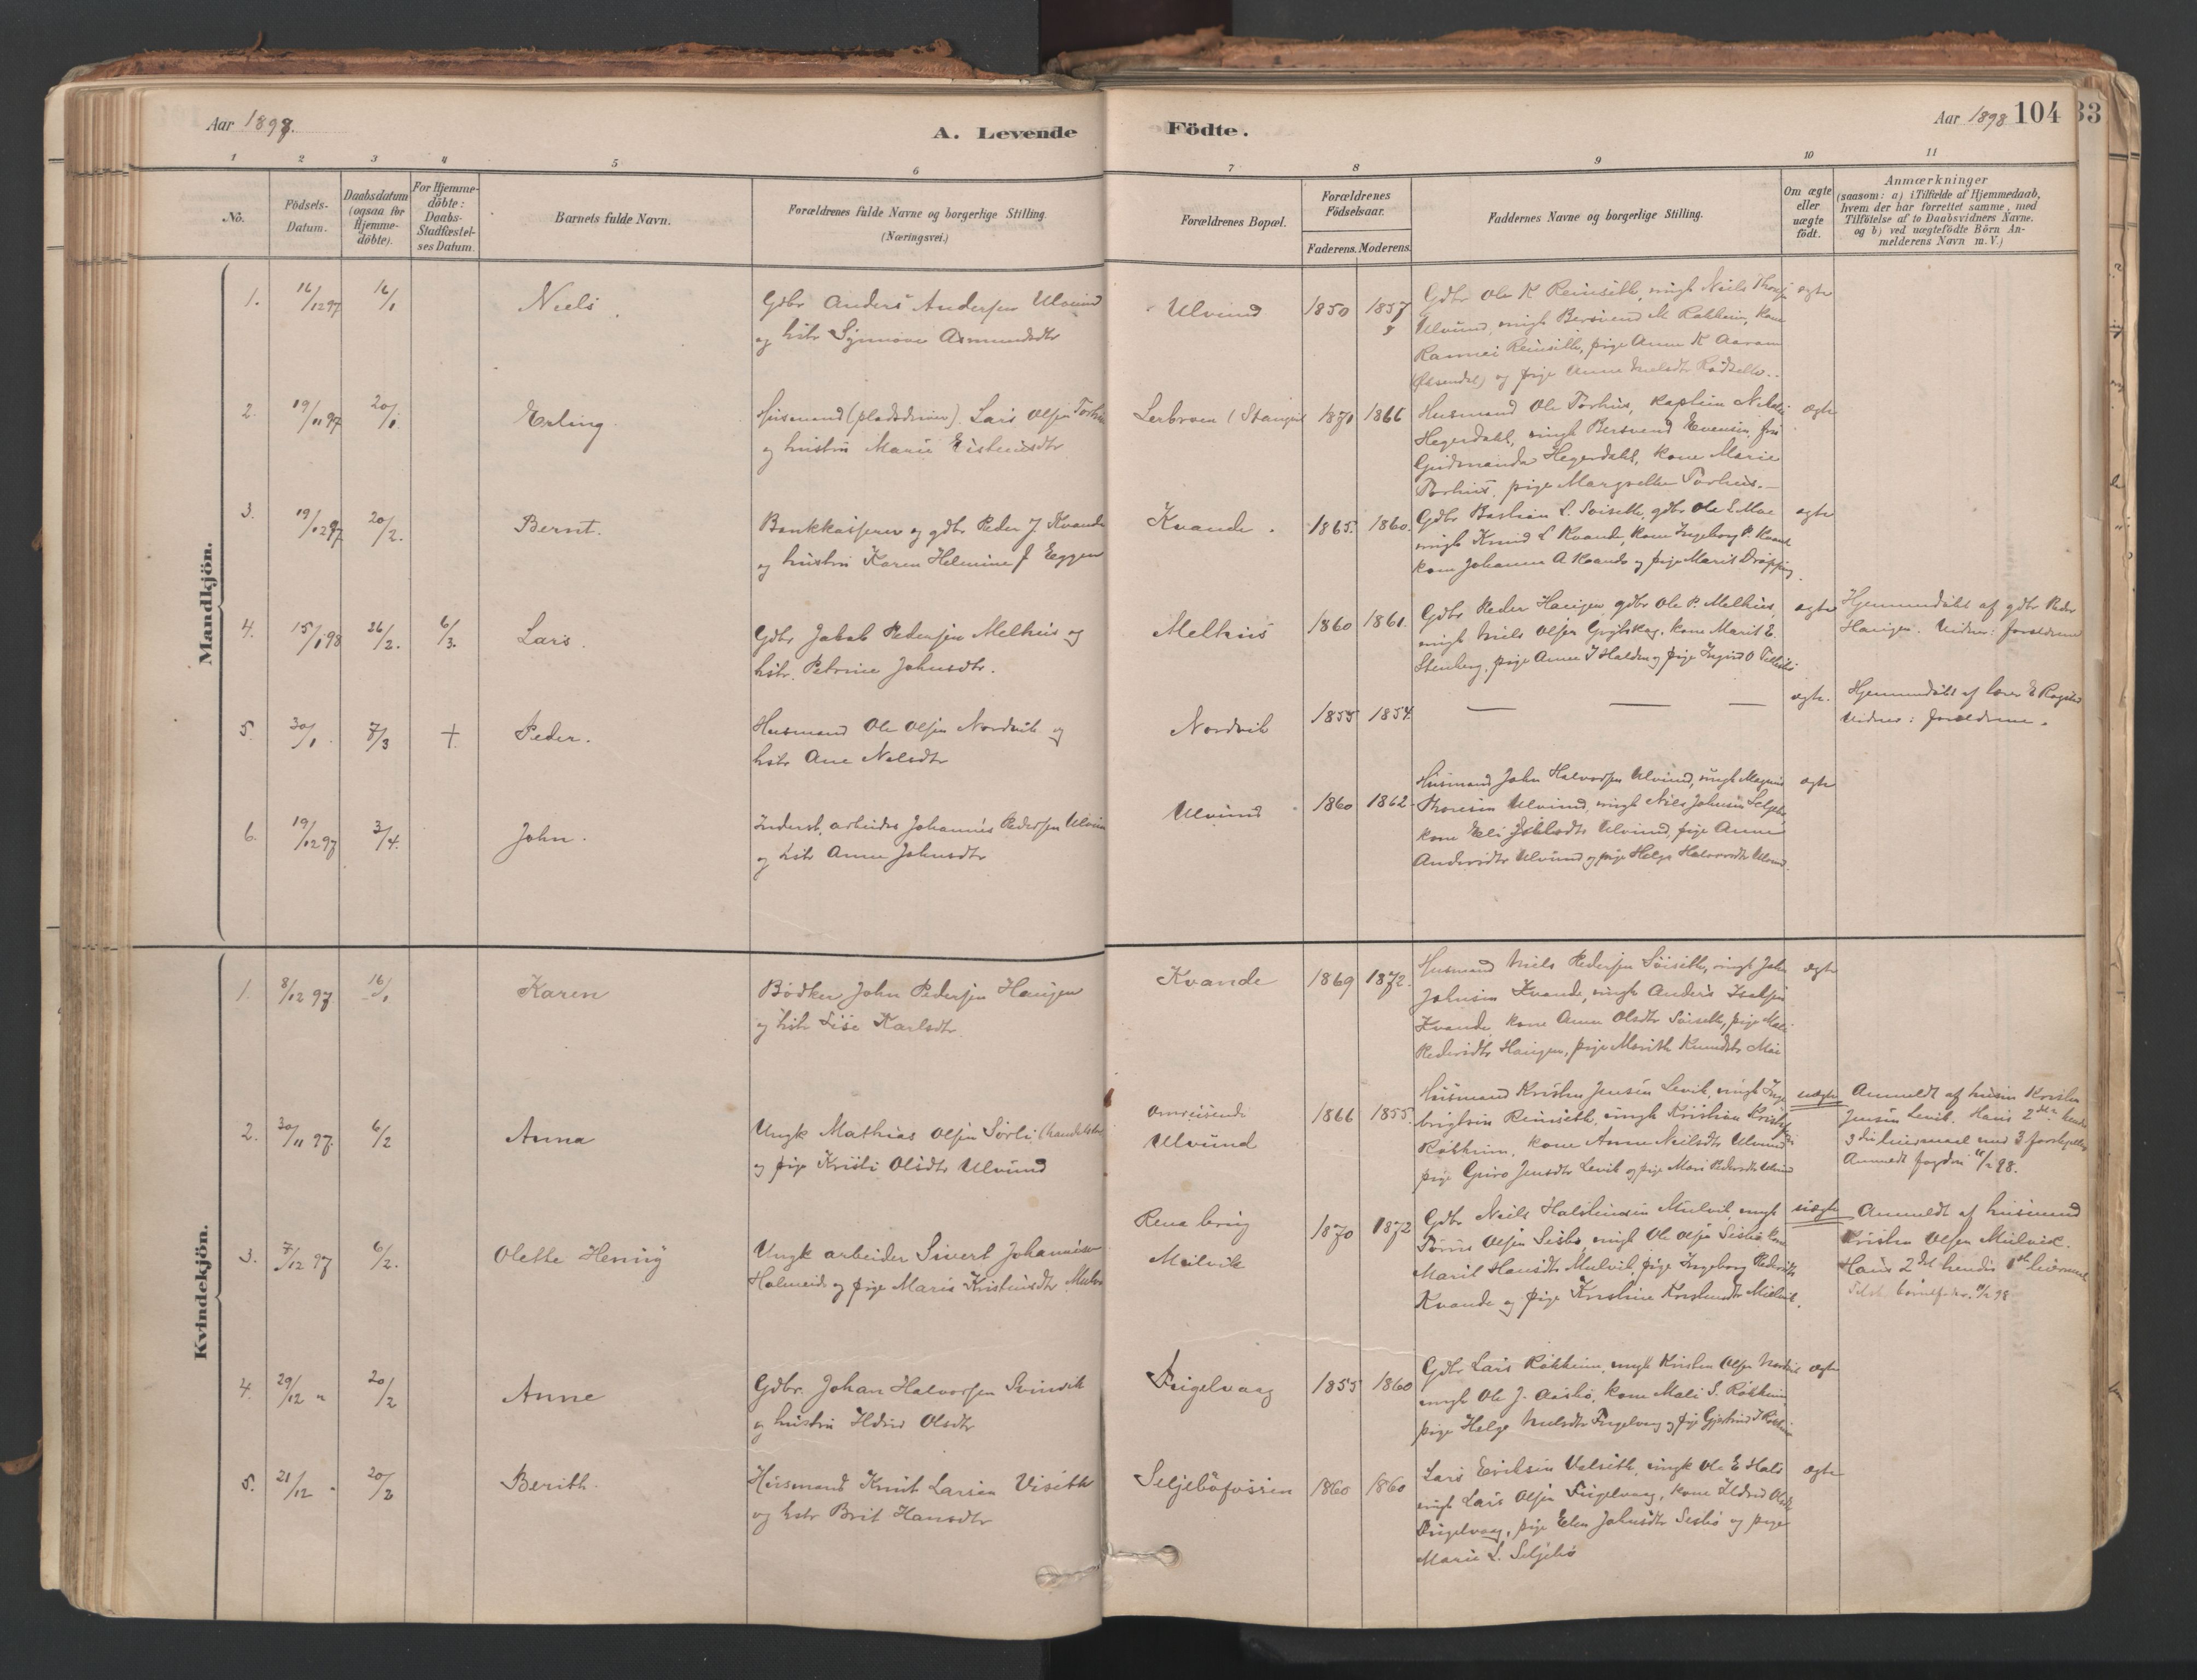 Aar 1898.
A. Levende Födte.
Aar 1898 104
33
1 2 3 4 5 6 7 8 9 10 11
No.
Födsels-
Datum.
Daabsdatum
(ogsaa for
Hjemme-
döbte).
For Hjemme-
döbte:
Daabs-
Stadfæstel-
ses Datum.
Barnets fulde Navn.
Forældrenes fulde Navne og borgerlige Stilling.
(Næringsvei.)
Forældrenes Bopæl.
Forældrenes
Födselsaar.
Faderens. Moderens.
Faddernes Navne og borgerlige Stilling.
Om ægte
eller
uægte
födt.
Anmærkninger
(saasom: a) i Tilfælde af Hjemmedaab,
hvem der har forrettet samme, med
Tilföielse af to Daabsvidners Navne.
og b) ved uægtefödte Börn An-
melderens Navn m. V.)
Mandkjön.
1. 16/12 97 16/1 Niels.
Gdbr Anders Andersen Ulvund
og hstr Synnove Asmundsdtr
Ulvund 1850 1857
Gdbr Ole K Reinseth, ungk Niels
Ulvund, ungk Bersvend M Rökkum, kone
Rannei Reinseth, pige Anne K Aaram
(Øksendal) og pige Anne Nielsdtr
ægte
2. 19/11 97 20/1 Erling.
Husmand (pladsdriver) Lars Olsen Torhus
og hustru Marie Eistensdtr
Lerbroen (Stangvik 1870 1866
Husmand Ole Torhus, Kaptein
Hegerdahl, ungk Bersvend Evensen, fru
Hegerdahl, kone Marie
Torhus, pige Margrethe Torhus.
ægte
3. 19/12 97 20/2. Bernt.
Bankkasserer og gdbr Peder J Kvande
og hustru Karen Helmine J Eggen
Kvande. 1865. 1860.
Gdbr Bastian L. Sviseth, gdbr Ole E Moe
ungk Knud L Kvande, kone Ingeborg P. Kvande
kone Johanna A Kvande og pige Marit Dröpping.
ægte
4. 15/1 98 26/2. 6/3. Lars.
Gdbr Jakob Pedersen Melhus og
hstr. Petrine Johnsdtr.
Melhus 1860 1861.
Gdbr Peder Haugen gdbr Ole P. Melhus,
ungk Niels Olsen, kone Marit E.
Stenberg, pige Anne J Halden og pige Ingrid O
ægte
Hjemmedöbt af gdbr Peder
Haugen. Vidner: forældrene
5. 30/1. 7/3 + Peder.
Husmand Ole Olsen Nordvik og
hstr Ane Nelsdtr
Nordvik 1855 1854.
— — —
ægte.
Hjemmedöbt af lærer E
Vidner: forældrene.
6. 19/12 97 3/4. John.
Inderst, arbeider Johannes Pedersen Ulvund
og hstr Anne Johnsdtr
Ulvund 1860 1862
Husmand John Halvorsen Ulvund, ungk Magnus
Thoresen Ulvund, ungk Nils Johnsen
kone Eli Ulvund, pige Anne
Andersdtr Ulvund og pige Helga Halvorsdtr Ulvund.
ægte
Kvindekjön.
1. 8/12 97 16/1 Karen
Bödker John Pedersen Haugen
og hstr Lise Karlsdtr
Kvande 1869 1872.
Husmand Niels Pedersen Söiseth, ungk John
Johnsen Kvande, ungk Anders
Kvande, kone Anne Olsdtr Söiseth, pige Mali
Pedersdtr Haugen, pige Marith Knudsdtr Moe
ægte
2. 30/11 97. 6/2 Anna
Ungk Mathias Olsen Sörli (
og pige Kristi Olsdtr Ulvund
Omreisende
Ulvund
1866 1855.
Husmand Kristen Jensen Levik, ungk
Reinseth, ungk Kristian
Rökkum, kone Anne Nielsdtr Ulvund
pige Guro Jensdtr Levik og pige Mari Pedersdtr Ulvund
uægte
Anmeldt af husm Kristen
Jensen Levik. Hans 2det hendes
3die leiermaal med 3 forskjellige
Anmeldt fogden 11/2 98.
3. 7/12 97 6/2. Olette Henny
Ungk arbeider Sivert Johannesen
Holmeide og pige Maria Kristensdtr Mulvik
Rena brug
Mulvik
1870 1872
Gdbr Neils Halstensen Mulvik, ungk
Olsen Sesbø, ungk Ole Olsen Sesbø kone
Marit Hansdtr Mulvik, pige Ingeborg Pedersdtr
Kvande og pige Kristine Kristensdtr Mulvik.
uægte
Anmeldt af husmand
Kristen Olsen Mulvik.
Hans 2det hendes 1ste leiermaal
11/2 98
4. 29/12 " 20/2 Anne
Gdbr. Johan Halvorsen Svinvik
og hustru Ildrid Olsdtr
Fugelvaag 1855 1860
Gdbr Lars Rökkum, ungk Kristen Olsen Nordvik
ungk Ole J. Aasbø, kone Mali S. Rökkum,
pige Helge Nielsdtr Fugelvaag og pige Gjertrud J Rökkum
ægte
5. 21/12 " 20/2 Berith.
Husmand Knut Larsen Viseth
og hstr Brit Hansdtr
Seljeböfossen 1860 1860
Lars Eriksen Valseth, ungk Ole E Hals
ungk Lars Olsen Fugelvaag, kone Ildrid Olsdtr
Fugelvaag, pige Elen Johnsdtr Sesbö og pige
Marie L. Seljebö
ægte